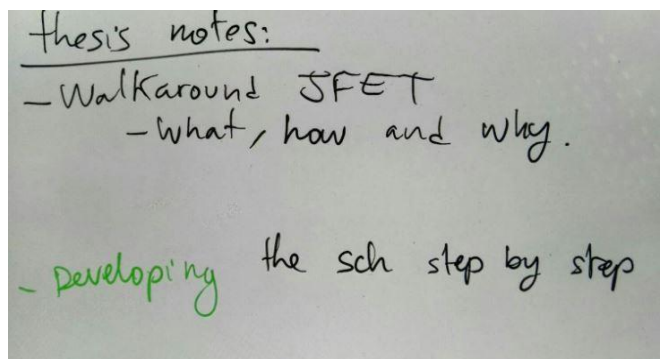 thesis notes:
- Walkaround JFET
- What, how and why.
- Developing the sch step by step